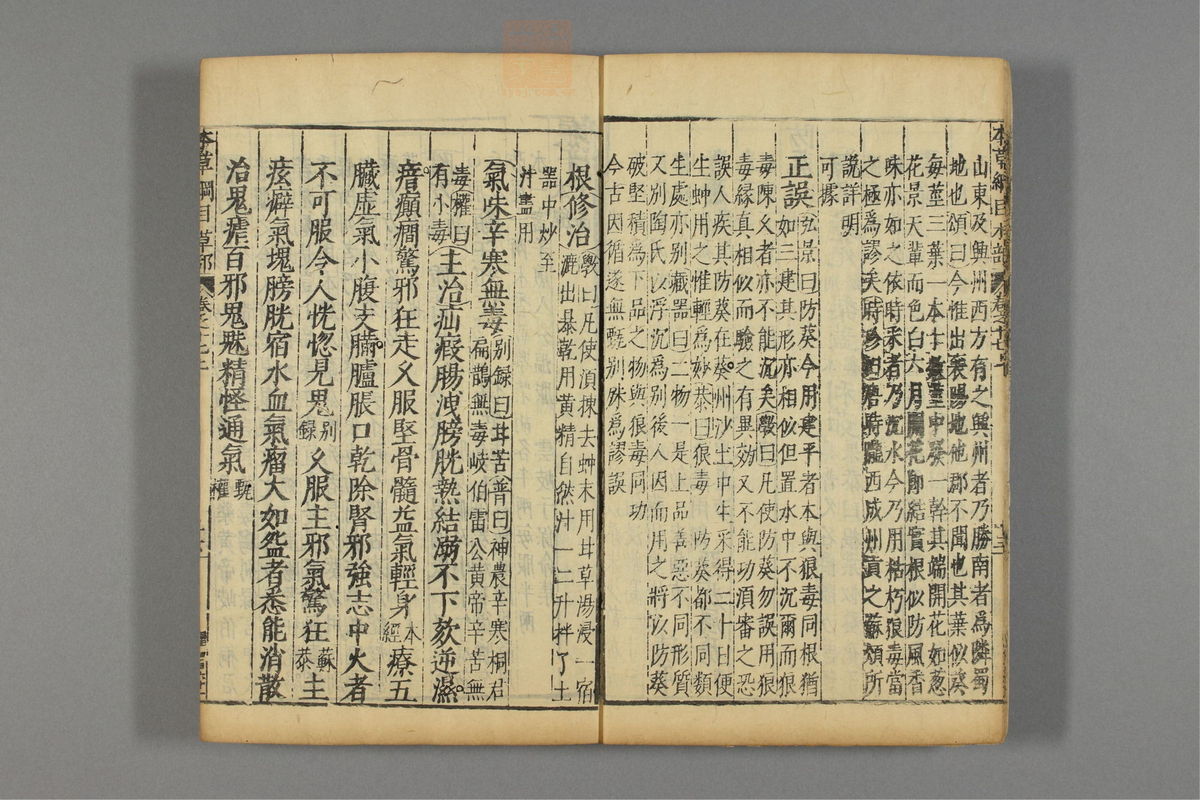 山東及興州西方有之興州者乃勝南者爲隣蜀
地也頌曰今惟出襄陽地他郡不聞也其葉似葵
每莖三葉一本十數莖中發一幹其端開花如葱
花景天輩而色白六月開花即結實根似防風香
味亦如之依時采者乃沉水今乃用枯朽狼毒當
之極爲謬矣時珍曰唐時隴西成州貢之蘇頌所
說詳明
可據
正誤弘景曰防葵今用建平者本與狼毒同根猶
如三建其形亦相似但置水中不沉爾而狼
毒陳久者亦不能沉矣斅曰凡使防葵勿誤用狼
毒緣真相似而驗之有異効又不能切湏審之恐
誤人疾其防葵在蔡州沙土中生采得二十日便
生蚛用之惟輕爲妙恭曰狼毒防葵都不同類
生處亦别藏器曰二物一是上品善惡不同形質
又别陶氏以浮沉爲别後人因而用之將以防葵
破堅積爲下品之物與狼毒同功
今古因循遂無甄别殊爲謬誤
根修治斅曰凡使湏揀去蚛末用甘草湯浸一宿
漉出暴乾用黃精自然汁一二升拌了土
器中炒至
汁盡用
氣味辛寒無毒别録曰甘苦普曰神農辛寒桐君
扁鵲無毒岐伯雷公黃帝辛苦無
毒權曰
有小毒主治疝瘕腸洩膀胱熱結溺不下欬逆濕
瘖癲癎驚邪狂走久服堅骨髓益氣輕身本經療五
臟虚氣小腹支滿臚脹口乾除腎邪強志中火者
不可服令人恍惚見鬼别録久服主邪氣驚狂蘇恭主
痃癖氣塊膀胱宿水血氣瘤大如盌者悉能消散
治鬼瘧百邪鬼魅精怪通氣甄權
本草綱目草部
卷之十七上
本草綱目